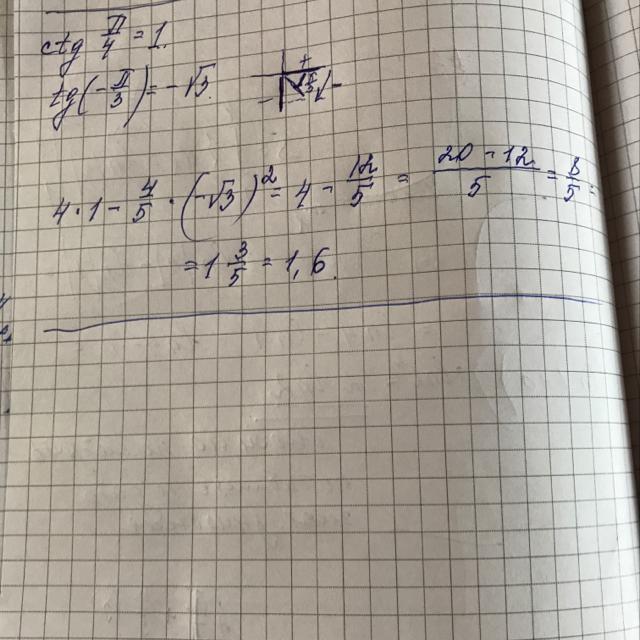 ctg π/4 = 1.
tg(-π/3) = -√3.
4·1 - 4/5 · (-√3)² = 4 - 12/5 = (20-12)/5 = 8/5 =
= 1 3/5 = 1,6.